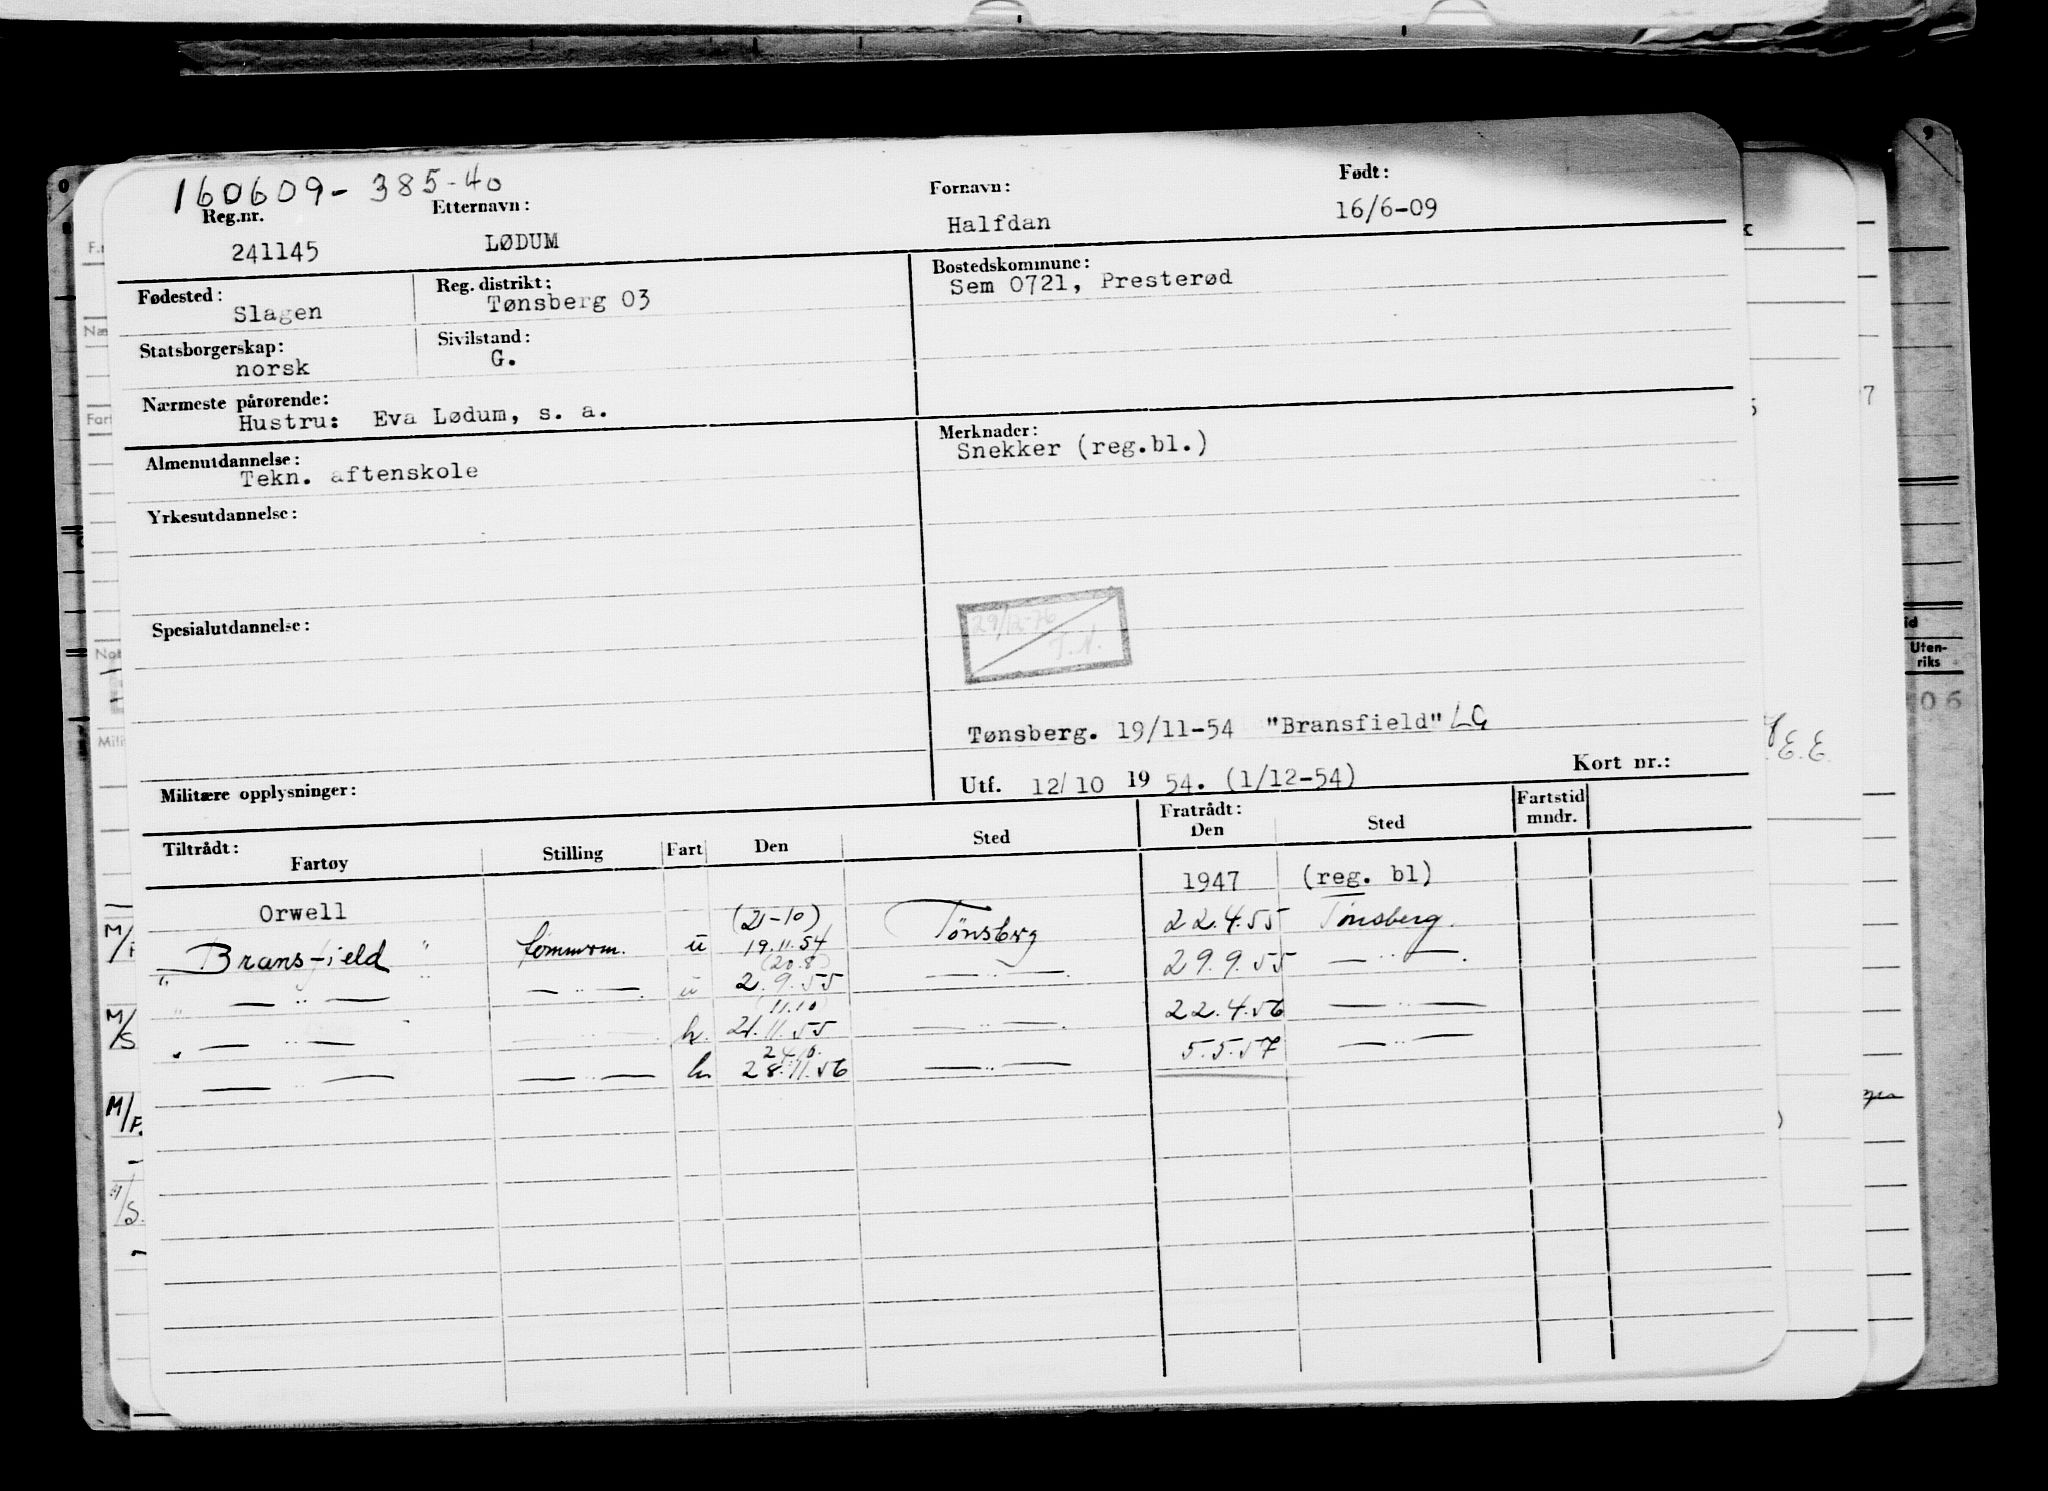 160609-385-40
Reg.nr. Etternavn: Fornavn: Født:
241145 LØDUM Halfdan 16/6-09
Fødested: Reg. distrikt: Bostedskommune:
Slagen Tønsberg 03 Sem 0721, Presterød
Statsborgerskap: Sivilstand:
norsk G.
Nærmeste pårørende:
Hustru: Eva Lødum, s. a.
Almenutdannelse: Merknader:
Tekn. aftenskole Snekker (reg.bl.)
Yrkesutdannelse:
Spesialutdannelse:
29/12-76
T.N.
Tønsberg. 19/11-54 "Bransfield" LG
Militære opplysninger: Utf. 12/10 1954. (1/12-54) Kort nr.:
Tiltrådt: Fratrådt: Fartstid
Fartøy Stilling Fart Den Sted Den Sted mndr.
Orwell 1947 (reg. bl)
(21-10)
" Bransfield " tømmerm. ü 19.11.54 Tønsberg 22.4.55 Tønsberg.
(20.8)
" — " — — " — ü 2.9.55 — " — 29.9.55 — " —
(11.10)
" — " — h. 21.11.55 — " — 22.4.56 — " —
24.10.
— " — — " — h 28.11.56 — " — 5.5.57 — " —
M/
M/
S
M/
F.
/S.
Uten-
riks
06
E.E.